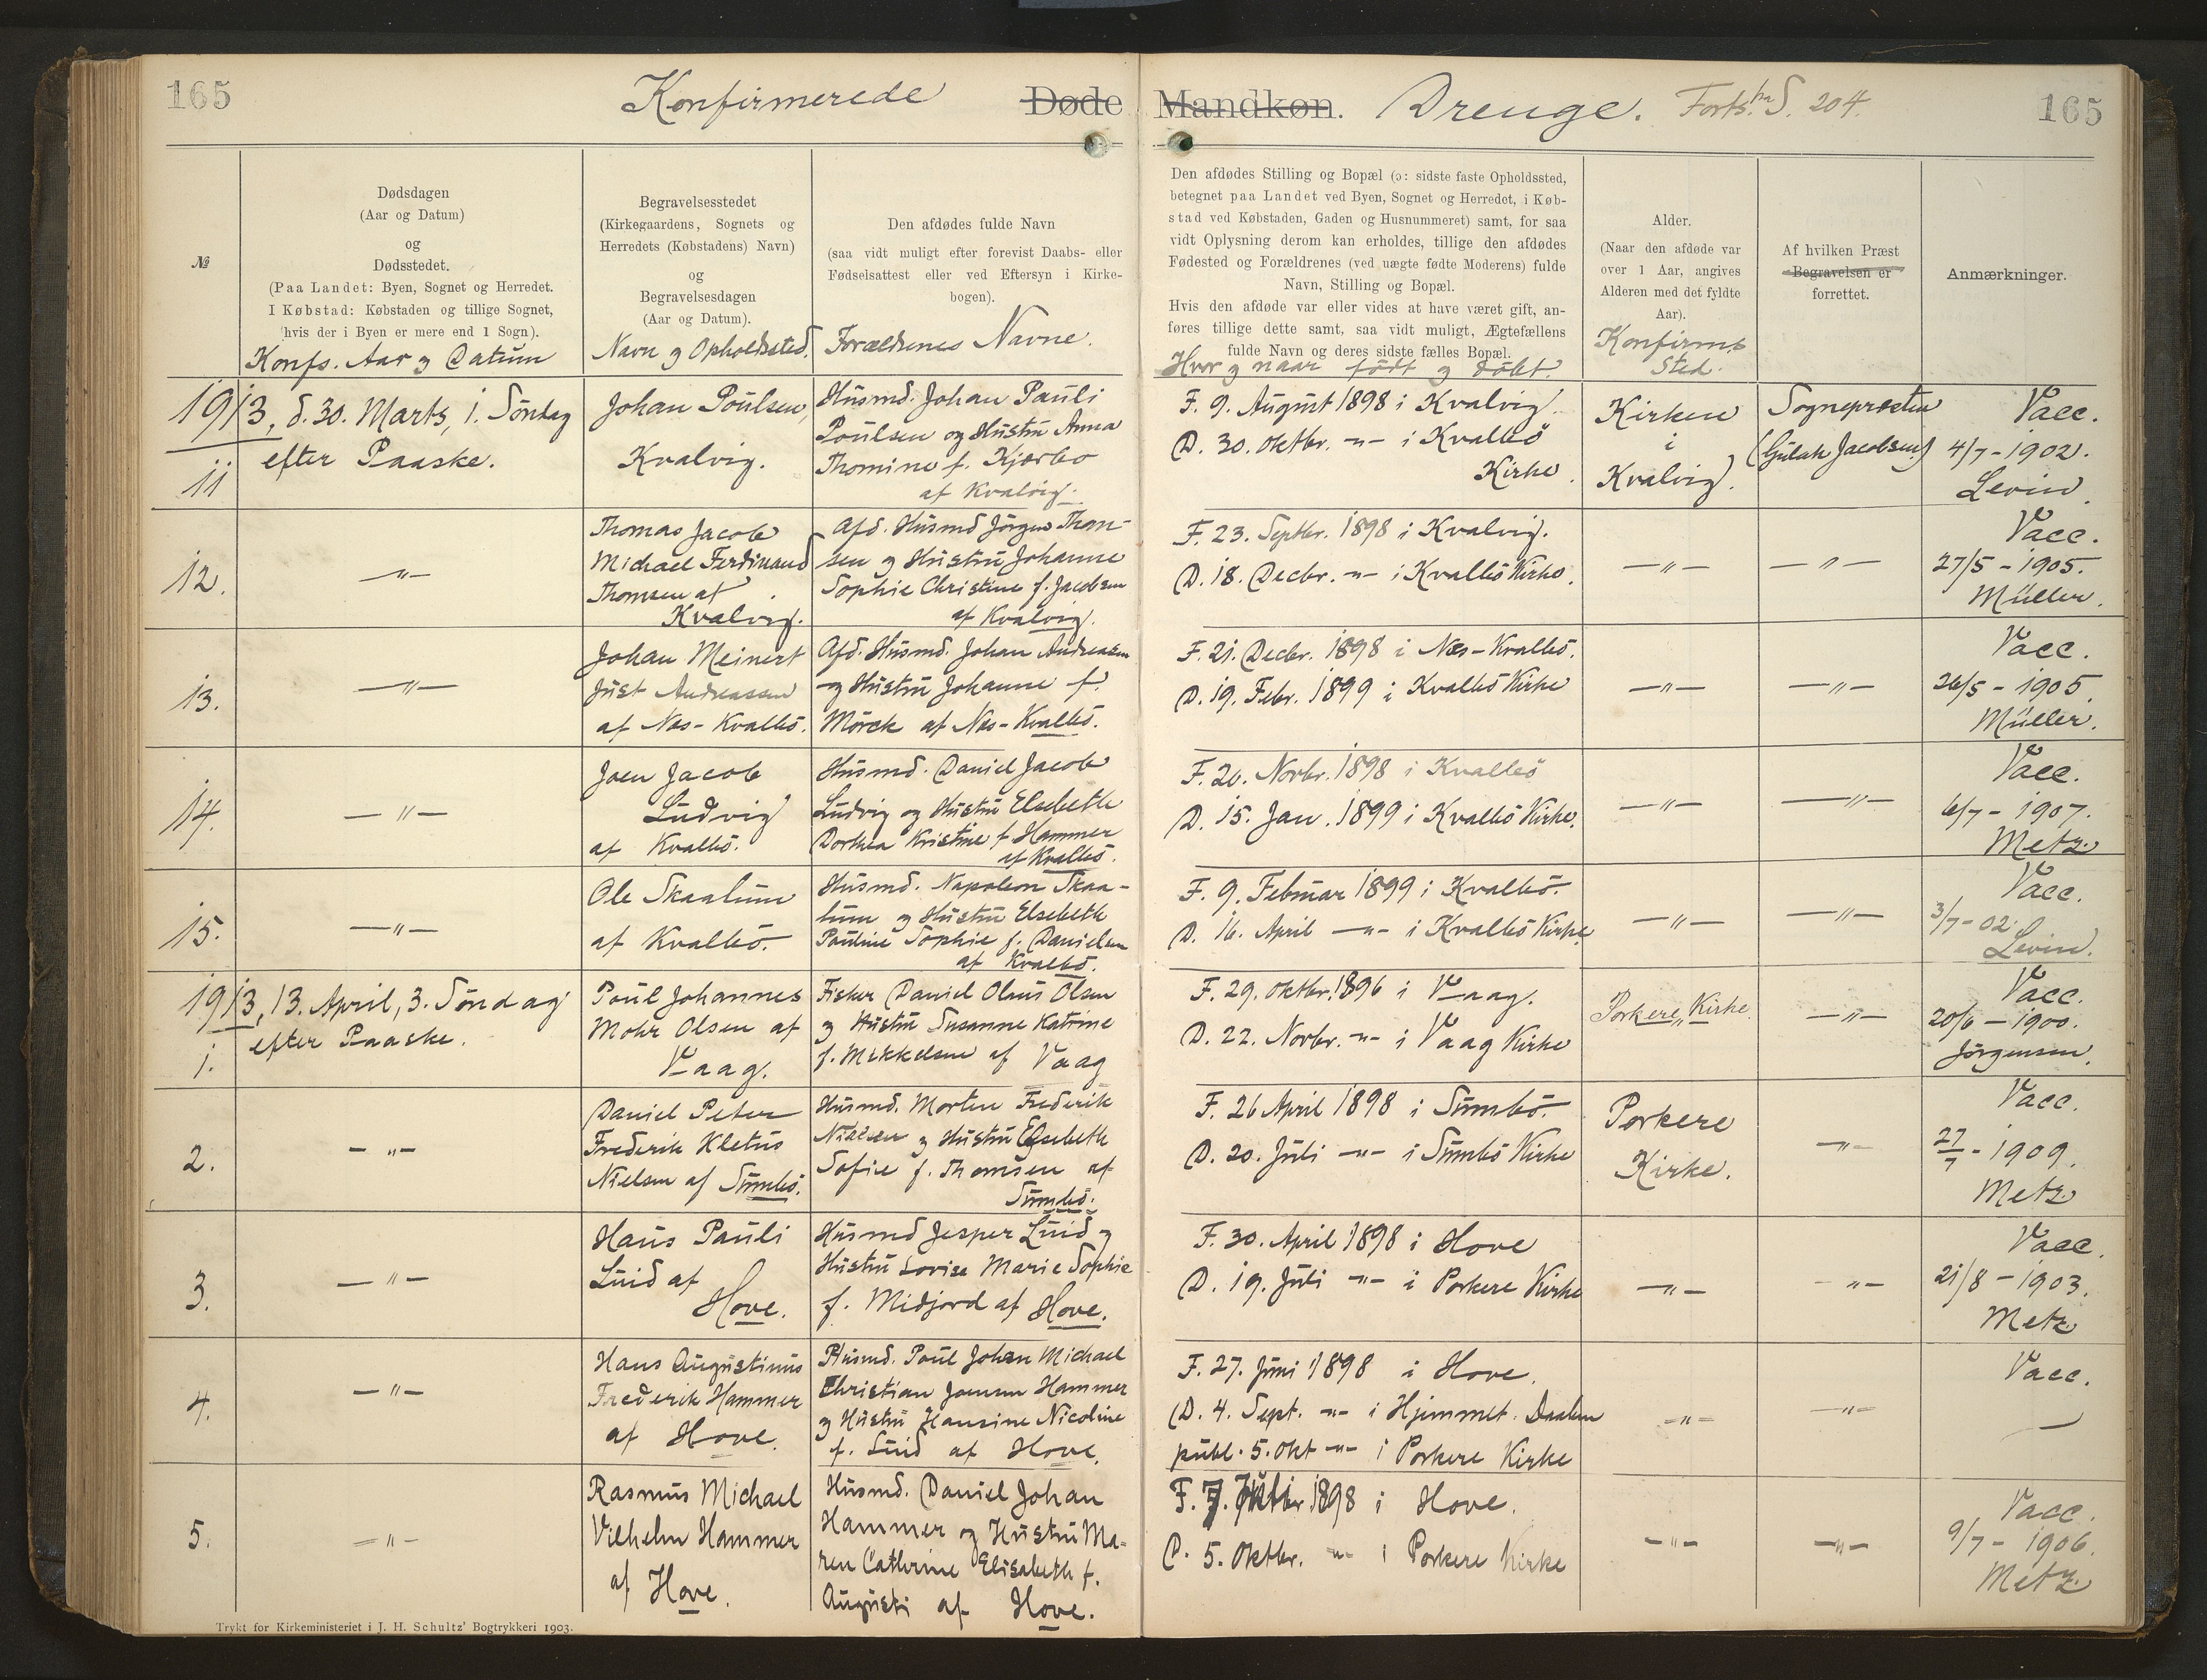 165 Konfirmerede Døde Mandkøn. Drenge. Forts. fra S. 204. 165
№
Dødsdagen
(Aar og Datum)
og
Dødsstedet.
(Paa Landet: Byen, Sognet og Herredet.
I Købstad: Købstaden og tillige Sognet,
hvis der i Byen er mere end 1 Sogn).
Konfs. Aar og Datum
Begravelsesstedet
(Kirkegaardens, Sognets og
Herredets (Købstadens) Navn)
og
Begravelsesdagen
(Aar og Datum).
Navn og Opholdssted.
Den afdødes fulde Navn
(saa vidt muligt efter forevist Daabs- eller
Fødselsattest eller ved Eftersyn i Kirke-
bogen).
Forældrenes Navne.
Den afdødes Stilling og Bopæl (ɔ: sidste faste Opholdssted,
betegnet paa Landet ved Byen, Sognet og Herredet, i Køb-
stad ved Købstaden, Gaden og Husnummeret) samt, for saa
vidt Oplysning derom kan erholdes, tillige den afdødes
Fødested og Forældrenes (ved uægte fødte Moderens) fulde
Navn, Stilling og Bopæl.
Hvis den afdøde var eller vides at have været gift, an-
føres tillige dette samt, saa vidt muligt, Ægtefællens
fulde Navn og deres sidste fælles Bopæl.
Hvor og naar født og døbt.
Alder.
(Naar den afdøde var
over 1 Aar, angives
Alderen med det fyldte
Aar).
Konfirmt.
Sted.
Af hvilken Præst
Begravelsen er
forrettet.
Anmærkninger.
1913, d. 30. Marts, 1. Söndag
efter Paaske.
11
Johan Poulsen,
Kvalvig.
Husmd. Johan Pauli
Poulsen og Hustru Anna
Thomine f. Kjærbo
af Kvalvig.
F. 9. August 1898 i Kvalvig.
D. 30. Oktbr. -"- i Kvalbö
Kirke.
Kirken
i
Kvalvig.
Sognepræsten
(Gulak Jacobsen)
Vacc.
4/7-1902.
Levin.
12.
-"-
Thomas Jacob
Michael Ferdinand
Thomsen af
Kvalvig.
Afd. Husmd Jörgen Thom-
sen og Hustru Johanne
Sophie Christine f. Jacobsen
af Kvalvig.
F. 23. Septbr. 1898 i Kvalvig.
D. 18. Decbr. -"- i Kvalbö Kirke.
-"-
-"-
Vacc.
27/5 - 1905.
Müller.
13.
-"-
Johan Meinert
Just Andreassen
af Næs-Kvalbö.
Afd. Husmd. Johan Andreasen
og Hustru Johanne f.
Mörck af Næs-Kvalbö.
F. 21. Decbr. 1898 i Næs-Kvalbö.
D. 19. Febr. 1899 i Kvalbö Kirke
-"-
-"-
Vacc.
26/5 - 1905
Müller.
14.
-"-
Joen Jacob
Ludvig
af Kvalbö.
Husmd. Daniel Jacob
Ludvig og Hustru Elsebeth
Dorthea Kristine f. Hammer
af Kvalbö.
F. 20. Novbr. 1898 i Kvalbö
D. 15. Jan. 1899 i Kvalbö Kirke.
-"-
-"-
Vacc.
6/7 - 1907.
Metz
15.
-"-
Ole Skaalum
af Kvalbö.
Husmd. Napoleon Skaa-
lum og Hustru Elsebeth
Pauline Sophie f. Danielsen
af Kvalbö.
F. 9. Februar 1899 i Kvalbö.
D. 16. April -"- i Kvalbö Kirke
-"-
-"-
Vacc.
3/7-02.
Levin.
1913, 13. April, 3. Söndag
efter Paaske.
1.
Poul Johannes
Mohr Olsen af
Vaag.
Fisker Daniel Olaus Olsen
og Hustru Susanne Katrine
f. Mikkelsen af Vaag
F. 29. Oktbr. 1896 i Vaag.
D. 22. Novbr. -"- i Vaag Kirke
Porkere Kirke.
-"-
Vacc.
20/6 - 1900.
Jörgensen.
2.
-"-
Daniel Peter
Frederik Kletus
Nielsen af Sumbö.
Husmd. Morten Frederik
Nielsen og Hustru Elsebeth
Sofie f. Thomsen af
Sumbö.
F. 26 April 1898 i Sumbö.
D. 20. Juli -"- i Sumbö Kirke
Porkere
Kirke.
-"-
Vacc.
27/7 - 1909.
Metz
3.
-"-
Hans Pauli
Luid af
Hove.
Husmd Jesper Luid og
Hustru Lovisa Marie Sophie
f. Midjord af Hove.
F. 30. April 1898 i Hove
D. 19. Juli -"- i Porkere Kirke
-"-
-"-
Vacc.
21/8 - 1903.
Metz
4.
-"-
Hans Augustinus
Frederik Hammer
af Hove.
Husmd. Poul Johan Michael
Christian Joensen Hammer
og Hustru Hansine Nicoline
f. Luid af Hove.
F. 27. Juni 1898 i Hove.
D. 4. Sept. -"- i Hjemmet. Daaben
publ. 5. Okt -"- i Porkere Kirke
-"-
-"-
Vacc.
—
5.
-"-
Rasmus Michael
Vilhelm Hammer
af Hove.
Husmd. Daniel Johan
Hammer og Hustru Ma-
ren Cathrine Elisabeth f.
Augusti af Hove.
F. 7. 1898 i Hove.
D. 5. Oktbr. -"- i Porkere Kirke
-"-
-"-
Vacc.
9/7 - 1906.
Metz
Trykt for Kirkeministeriet i J. H. Schultz' Bogtrykkeri 1903.